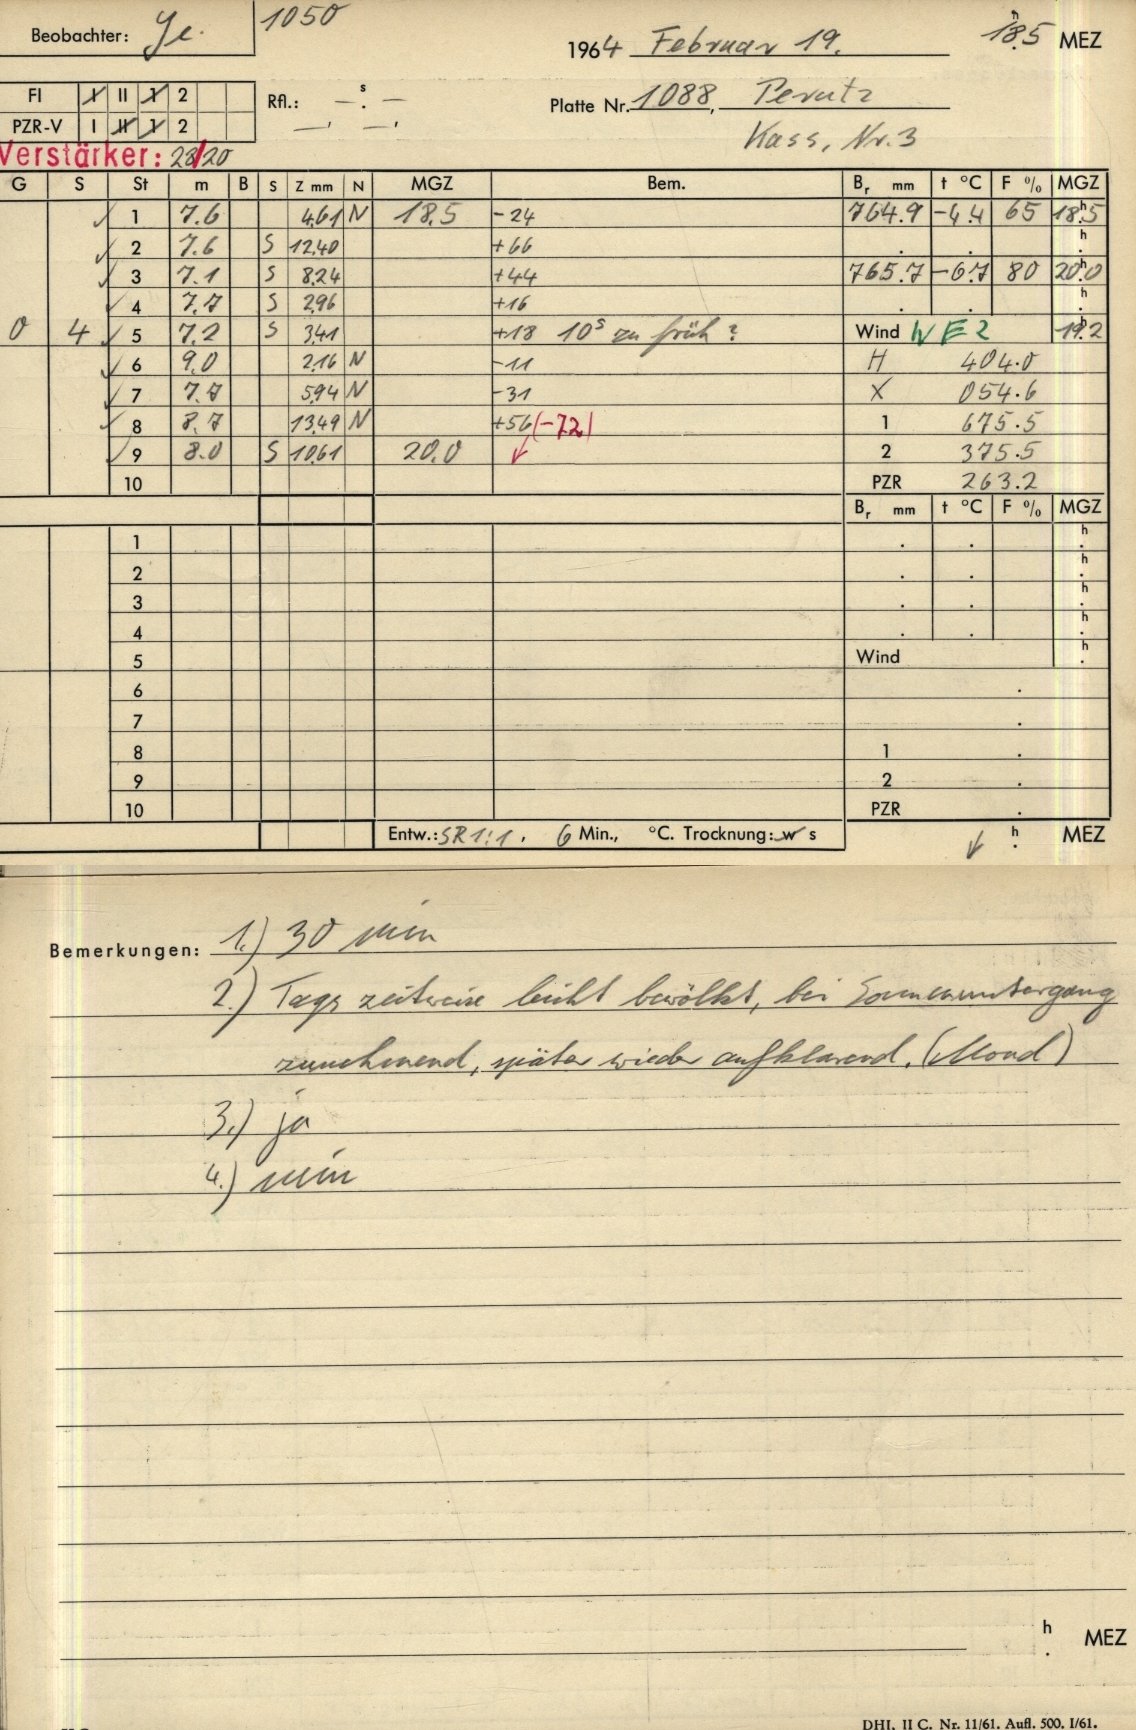 Beobachter: Je. 1050
1964 Februar 19. 18h.5 MEZ
FI I II 1 2
PZR-V I II 1 2
Rfl.: — s. —
—, —,
Platte Nr. 1088, Perutz
Kass. Nr. 3
Verstärker: 28/20
G S St m B S Z mm N MGZ Bem. Br mm t °C F % MGZ
1 7.6 4,61 N 18.5 -24 764.9 -4.4 65 18h.5
2 7.6 S 12,40 +66 . . h.
3 7.1 S 8,24 +44 765.7 -6.7 80 20h.0
4 7.7 S 2,96 +16 . . h.
0 4 5 7.2 S 3,41 +18 10s zu früh? Wind W E 2 19h.2
6 9.0 2,16 N -11 H 404.0
7 7.7 5,94 N -31 X 054.6
8 8.7 13,49 N +56 (-72) 1 675.5
9 8.0 S 10,61 20.0 2 375.5
10 PZR 263.2
Br mm t °C F % MGZ
1 . . h.
2 . . h.
3 . . h.
4 . . h.
5 Wind h.
6 .
7 .
8 1 .
9 2 .
10 PZR .
Entw.: SR 1:1, 6 Min., °C. Trocknung: w s h. MEZ
Bemerkungen: 1.) 30 min
2.) Tags zeitweise leicht bewölkt, bei Sonnenuntergang
zunehmend, später wieder aufklarend. (Mond)
3.) ja
4.) nein
h. MEZ
DHI. II C. Nr. 11/61. Aufl. 500. I/61.